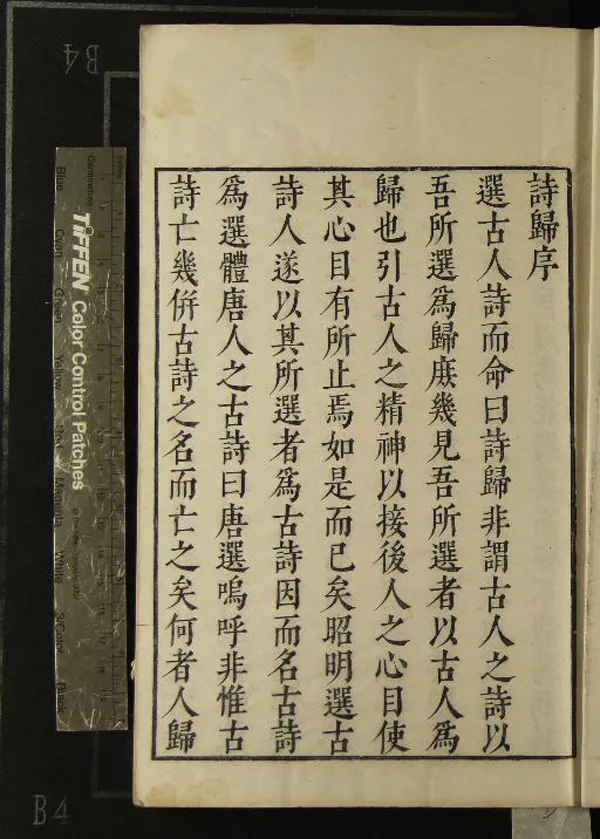 詩歸序
選古人詩而命曰詩歸非謂古人之詩以
吾所選爲歸庻幾見吾所選者以古人爲
歸也引古人之精神以接後人之心目使
其心目有所止焉如是而已矣昭明選古
詩人遂以其所選者爲古詩因而名古詩
爲選體唐人之古詩曰唐選嗚呼非惟古
詩亡幾併古詩之名而亡之矣何者人歸
B4
B4
Centimetres
Inches
TIFFEN Color Control Patches
Blue
Cyan
Green
Yellow
Red
Magenta
White
3/Color
Black